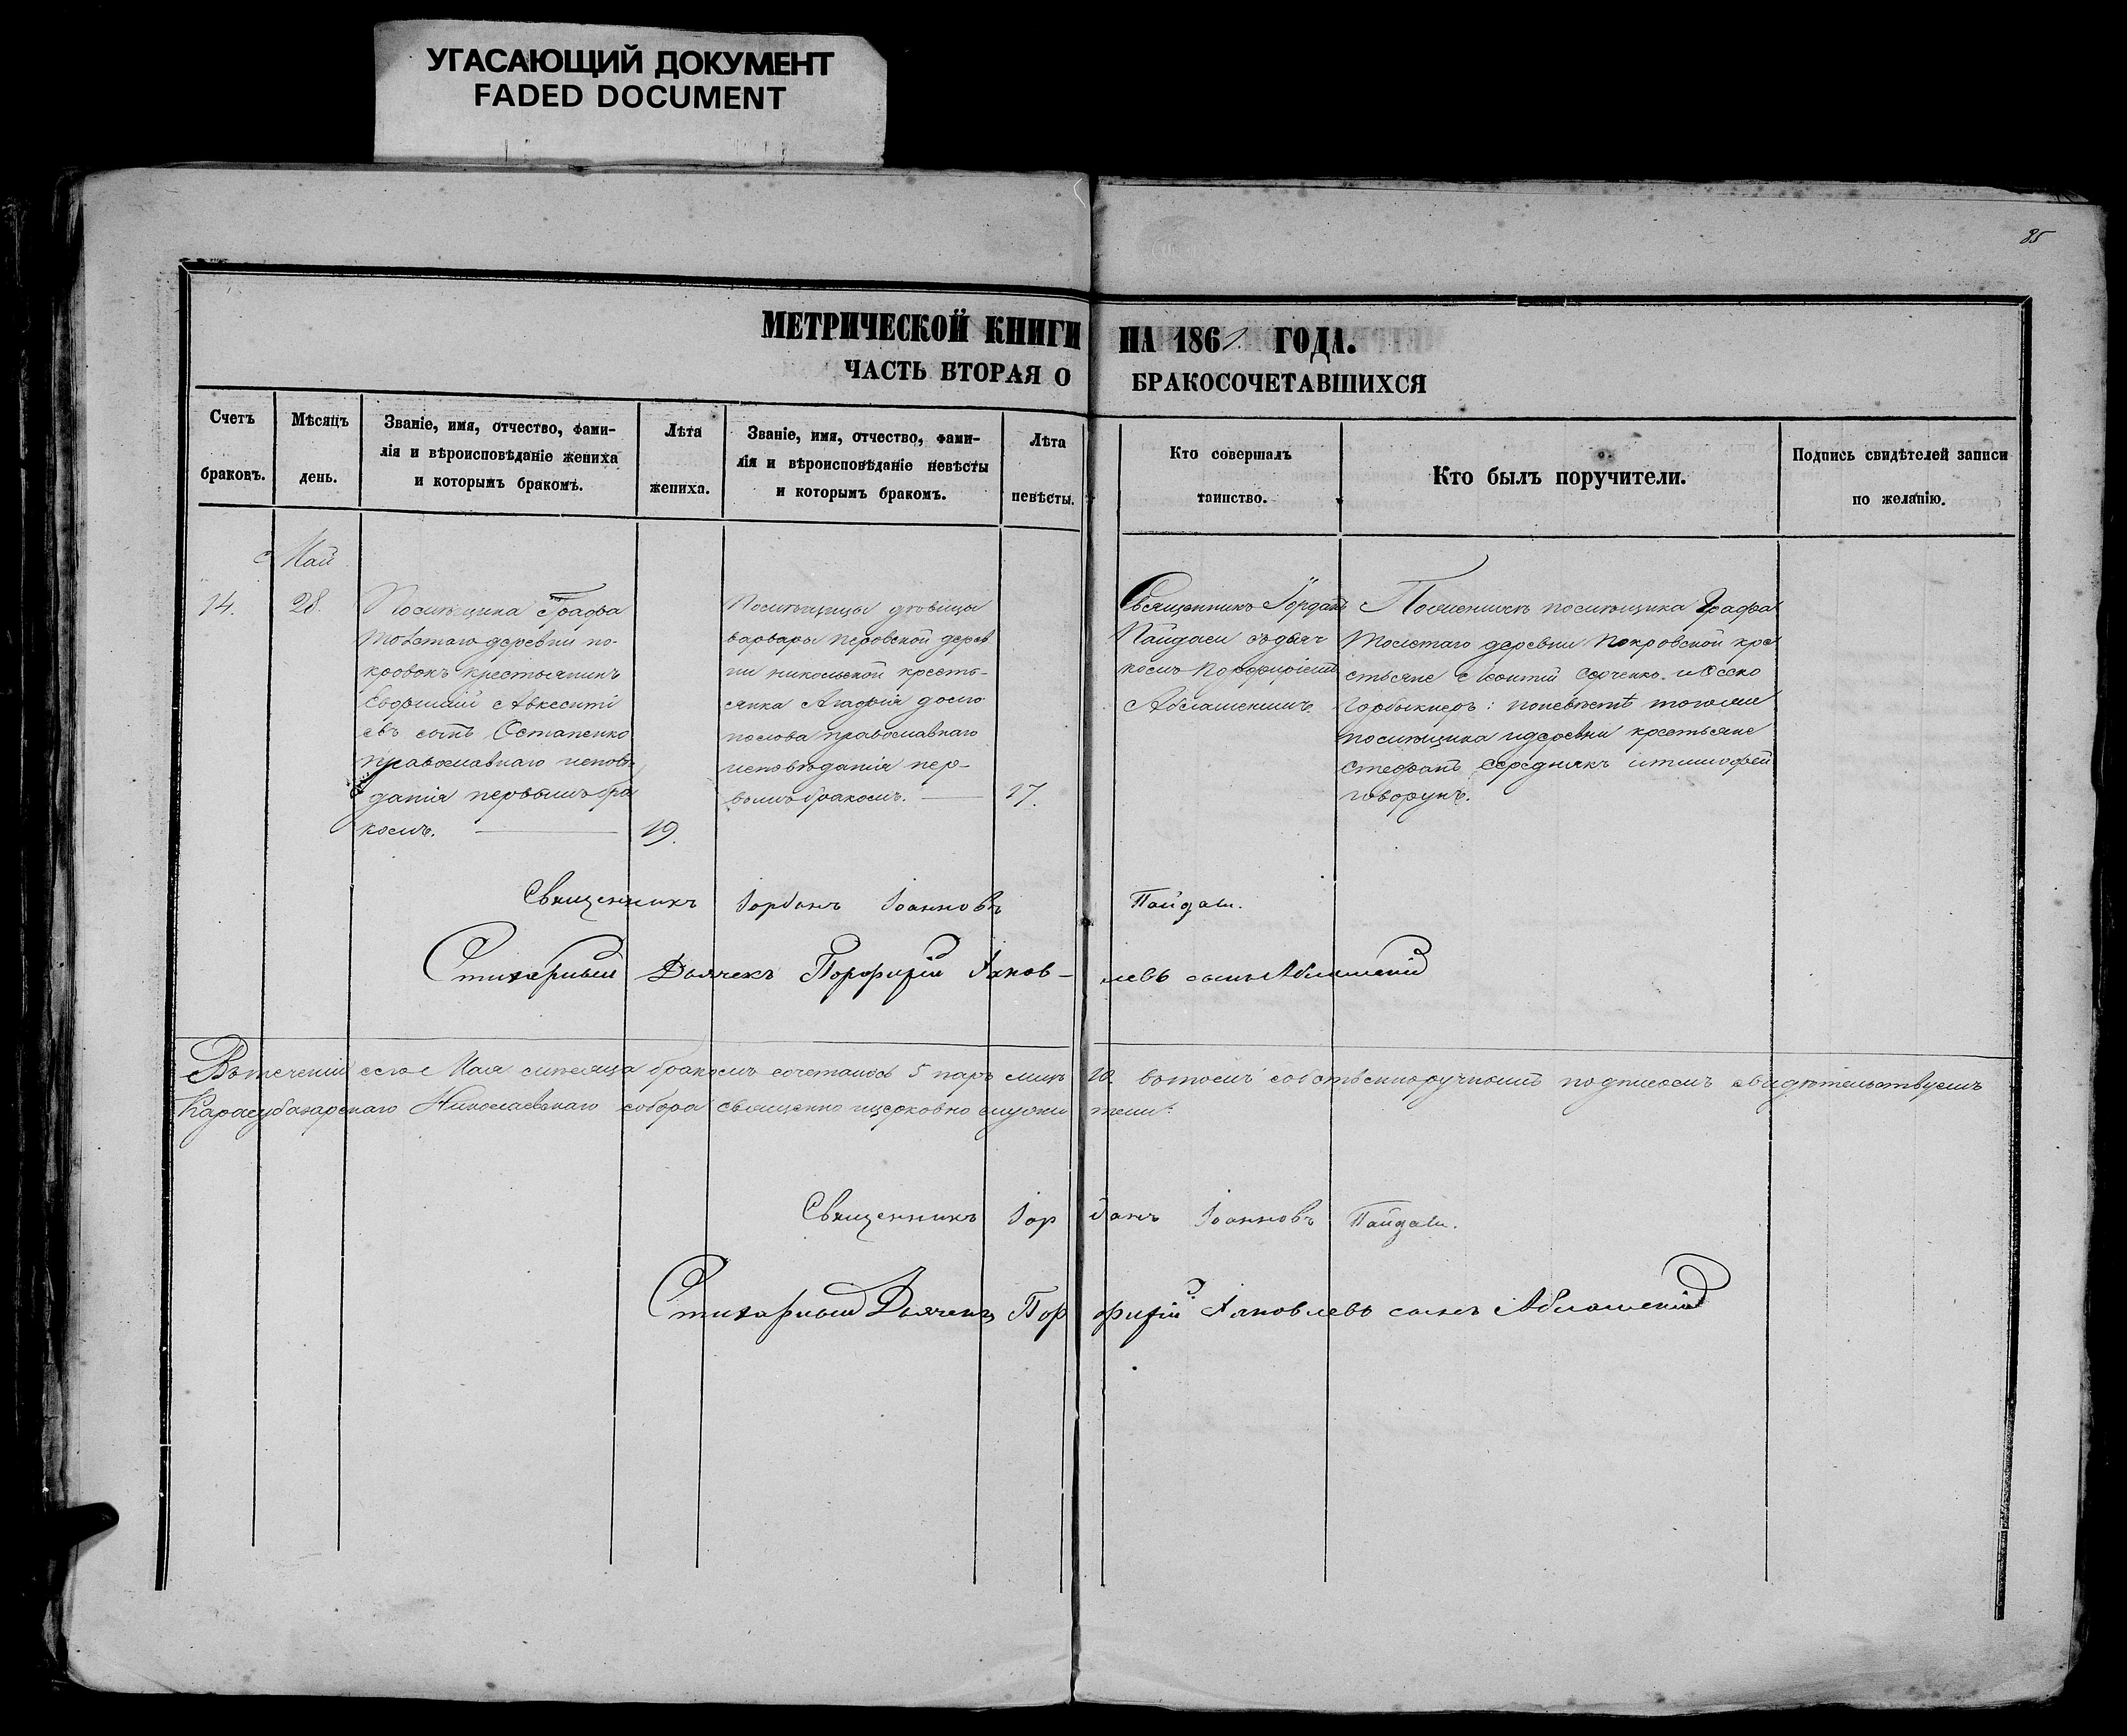 УГАСАЮЩИЙ ДОКУМЕНТ
FADED DOCUMENT
85
МЕТРИЧЕСКОЙ КНИГИ НА 1861 ГОДА.
ЧАСТЬ ВТОРАЯ О БРАКОСОЧЕТАВШИХСЯ
Счетъ
браковъ.
Мѣсяцъ
день.
Званіе, имя, отчество, фами-
лія и вѣроисповѣданіе жениха
и которымъ бракомъ.
Лѣта
жениха.
Званіе, имя, отчество, фами-
лія и вѣроисповѣданіе невѣсты
и которымъ бракомъ.
Лѣта
невѣсты.
Кто совершалъ
таинство.
Кто былъ поручители.
Подпись свидѣтелей записи
по желанію.
Май
14.
28.
Помѣщика Графа
Толстаго деревни по-
кровокъ крестьянинъ
Авксенті
евъ сынъ Остапенко
православнаго исповѣ
данія первымъ бра
комъ.
19.
Помѣщицы дѣвицы
варвары перовской дерев
ни никольской кресть-
янка Агафія долго
полова православнаго
исповѣданія пер-
вымъ бракомъ.
17.
Священникъ Іорданъ
Пайдаси съ дьяч
комъ Порфиріемъ
Абламскимъ
По женихѣ помѣщика Графа
Толстаго деревни Покровской кре
стьяне
поневѣстѣ тогоже
помѣщика идеревни крестьяне
Стефанъ Середнякъ итимофей
говорунъ.
Священникъ Іорданъ Іоанновъ Пайдаси.
Стихарный Дьячекъ Порфирій Яков-
левъ сынъ
Въ теченіи сего Мая мѣсяца бракомъ сочеталось 5 паръ вътомъ собственноручнымъ подписомъ свидѣтельствуемъ
Карасубазарскаго Николаевскаго собора священно ицерковно служи тели:
Священникъ Іор данъ Іоанновъ Пайдаси.
Стихарный Дьячекъ Пор фирій Яковлевъ сынъ